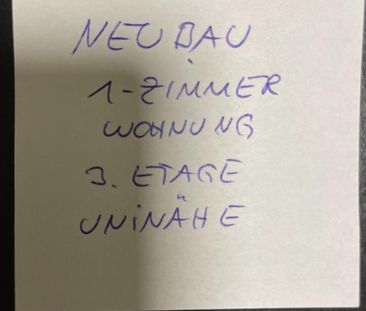 NEUBAU
1-ZIMMER
WOHNUNG
3. ETAGE
UNINÄHE